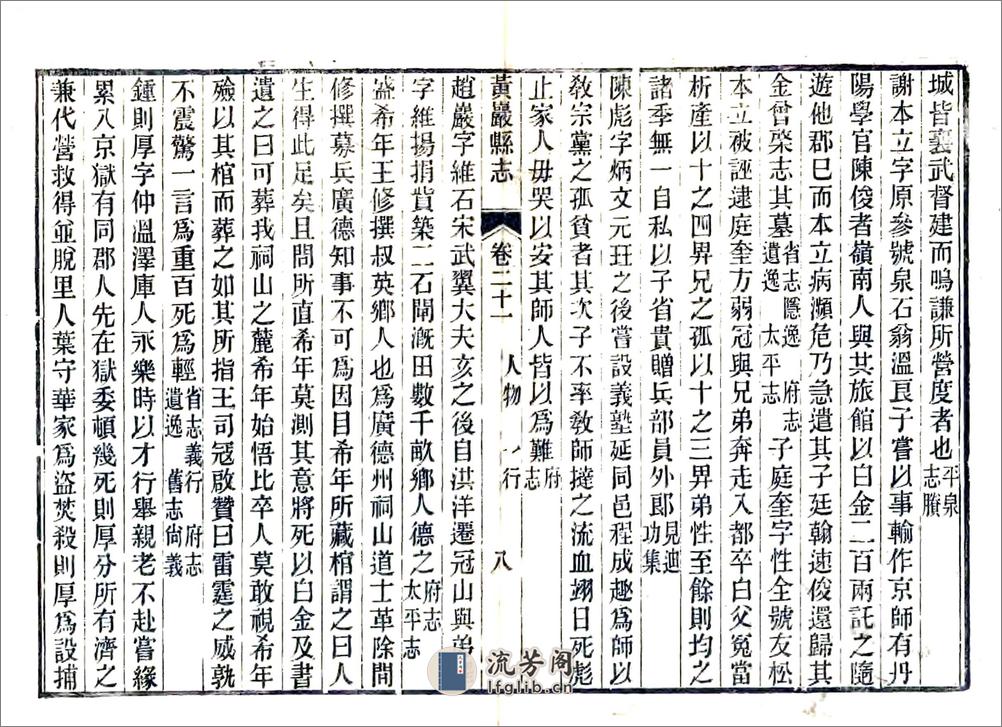 城皆襄武督建而鳴謙所營度者也平泉志賸
謝本立字原參號泉石翁溫良子嘗以事輸作京師有丹
陽學官陳俊者嶺南人與其旅館以白金二百兩託之隨
遊他郡巳而本立病瀕危乃急遣其子廷翰速俊還歸其
金曾棨志其墓省志隱逸 府志遺逸 太平志子庭奎字性全號友松
本立被誣逮庭奎方弱冠與兄弟奔走入都卒白父冤當
析產以十之四畀兄之孤以十之三畀弟性至餘則均之
諸季無一自私以子省貴贈兵部員外郎見迺功集
陳彪字炳文元珏之後嘗設義塾延同邑程成趣爲師以
敎宗黨之孤貧者其次子不率敎師撻之流血翊日死彪
止家人毋哭以安其師人皆以爲難府志
黃巖縣志 卷二十一 人物 一行 八
趙嚴字維石宋武翼大夫亥之後自淇洋遷冠山與弟
字維揚捐貲築二石閘漑田數千畝鄉人德之府志太平志
盛希年王修撰叔英鄉人也爲廣德州祠山道士革除間
修撰募兵廣德知事不可爲因目希年所藏棺謂之曰人
生得此足矣且問所直希年莫測其意將死以白金及書
遺之曰可葬我祠山之麓希年始悟比卒人莫敢視希年
殮以其棺而葬之如其所指王司寇啟贊曰雷霆之威孰
不震驚一言爲重百死爲輕省志義行 府志遺逸 舊志尙義
鍾則厚字仲溫澤庫人永樂時以才行舉親老不赴嘗緣
累入京獄有同郡人先在獄委頓幾死則厚分所有濟之
兼代營救得並脫里人葉守華家爲盜焚殺則厚爲設捕
流芳阁
lfglib.cn